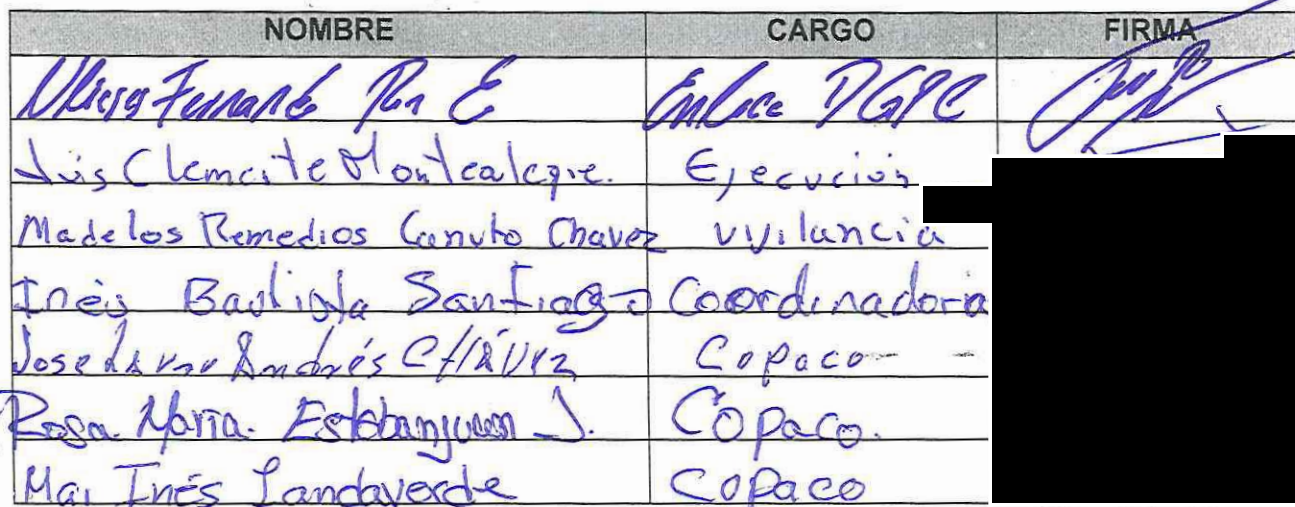 NOMBRE CARGO FIRMA
Fernando E Enlace DGPC
Luis Clemente Montealegre. Ejecución
Ma de los Remedios Canuto Chavez vvilancia
Inés Bautista Santiago Coordinadora
Jose Andrés CHÁVEZ Copaco
Rosa. María. J. Copaco.
Ma. Inés Landaverde Copaco